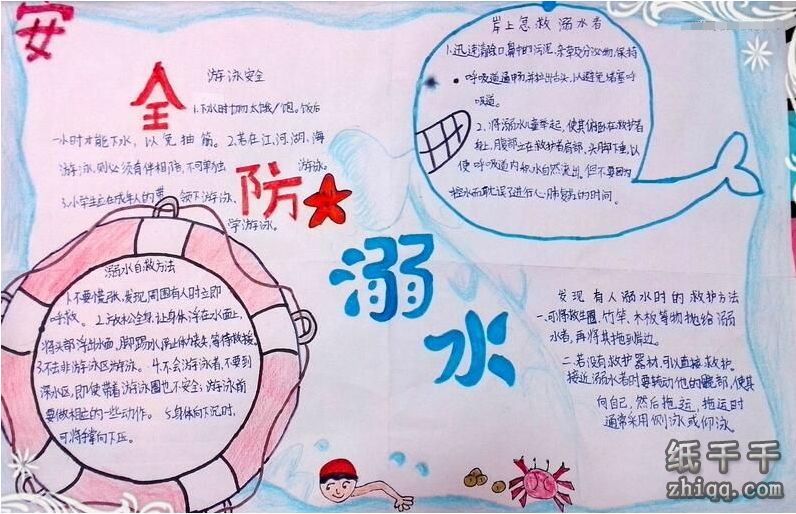 安
全
防
溺
水
游泳安全
1.下水时切勿太饿/饱。饭后
一小时才能下水，以免抽筋。2.若在江、河、湖、海
游泳,则必须有伴相陪,不可单独 游泳。
3.小学生应在成年人的带 领下游泳、
学游泳。
岸上急救溺水者
1.迅速清除口、鼻中的污泥、杂草及分泌物,保持
呼吸道通畅,并拉出舌头,以避免堵塞呼
吸道。
2.将溺水儿童举起,使其俯卧在救护者
肩上,腹部立在救护者肩部,头脚下垂,以
使呼吸道内积水自然流出。但不要因为
控水而耽误了进行心肺复苏的时间。
溺水自救方法
1.不要慌张,发现周围有人时立即
呼救。2.放松全身,让身体浮在水面上,
将头部浮出水面,脚踢水,防止体力丧失,等待救援。
3.不去非游泳区游泳。4.不会游泳者,不要到
深水区,即使带着游泳圈也不安全;游泳前
要做相应的一些动作。5.身体向下沉时,
可将手掌向下压。
发现有人溺水时的救护方法
一、可将救生圈、竹竿、木板等物抛给溺
水者,再将其拖到岸边。
二、若没有救护器材,可以直接救护。
接近溺水者时要转动他的髋部,使其
背向自己,然后拖运,拖运时
通常采用侧泳或仰泳
纸千千
zhiqq.com